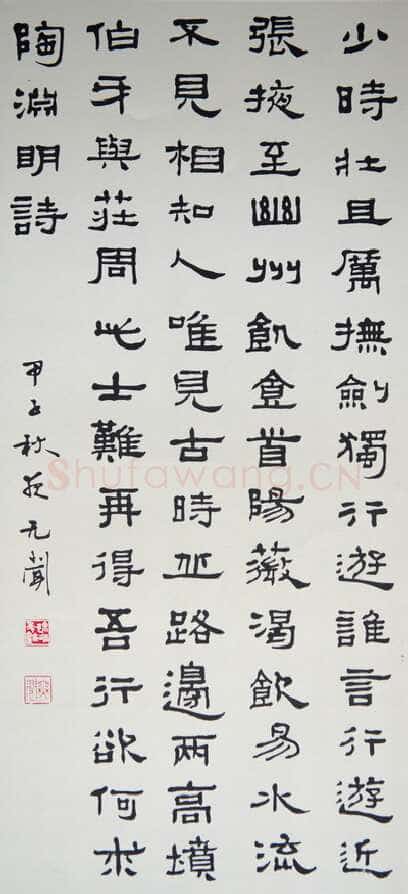 少時壯且厲撫劍獨行遊誰言行遊近
張掖至幽州飢食首陽薇渴飲易水流
不見相知人唯見古時丘路邊兩高墳
伯牙與莊周此士難再得吾行欲何求
陶淵明詩
甲子秋徐无聞
Shufawang.CN